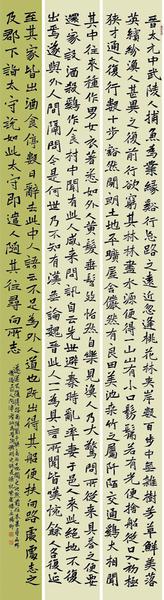 晉太元中武陵人捕魚為業緣溪行忘路之遠近忽逢桃花林夾岸數百步中無雜樹芳草鮮美落
英繽紛漁人甚異之復前行欲窮其林林盡水源便得一山山有小口髣髴若有光便捨船從口入初極
狹才通復行數十步豁然開朗土地平曠屋舍儼然有良田美池桑竹之屬阡陌交通鷄犬相聞
其中往来種作男女衣著悉如外人黃髮垂髫並怡然自樂見漁人乃大驚問所從来具答之便要
還家設酒殺鷄作食村中聞有此人咸来問訊自云先世避秦時亂率妻子邑人来此絕境不復
出焉遂與外人間隔問今是何世乃不知有漢無論魏晉此人一一為具言所聞皆嘆惋餘人各復延
至其家皆出酒食停數日辭去此中人語云不足為外人道也既出得其船便扶向路處處志之
及郡下詣太守說如此太守即遣人隨其往尋向所志